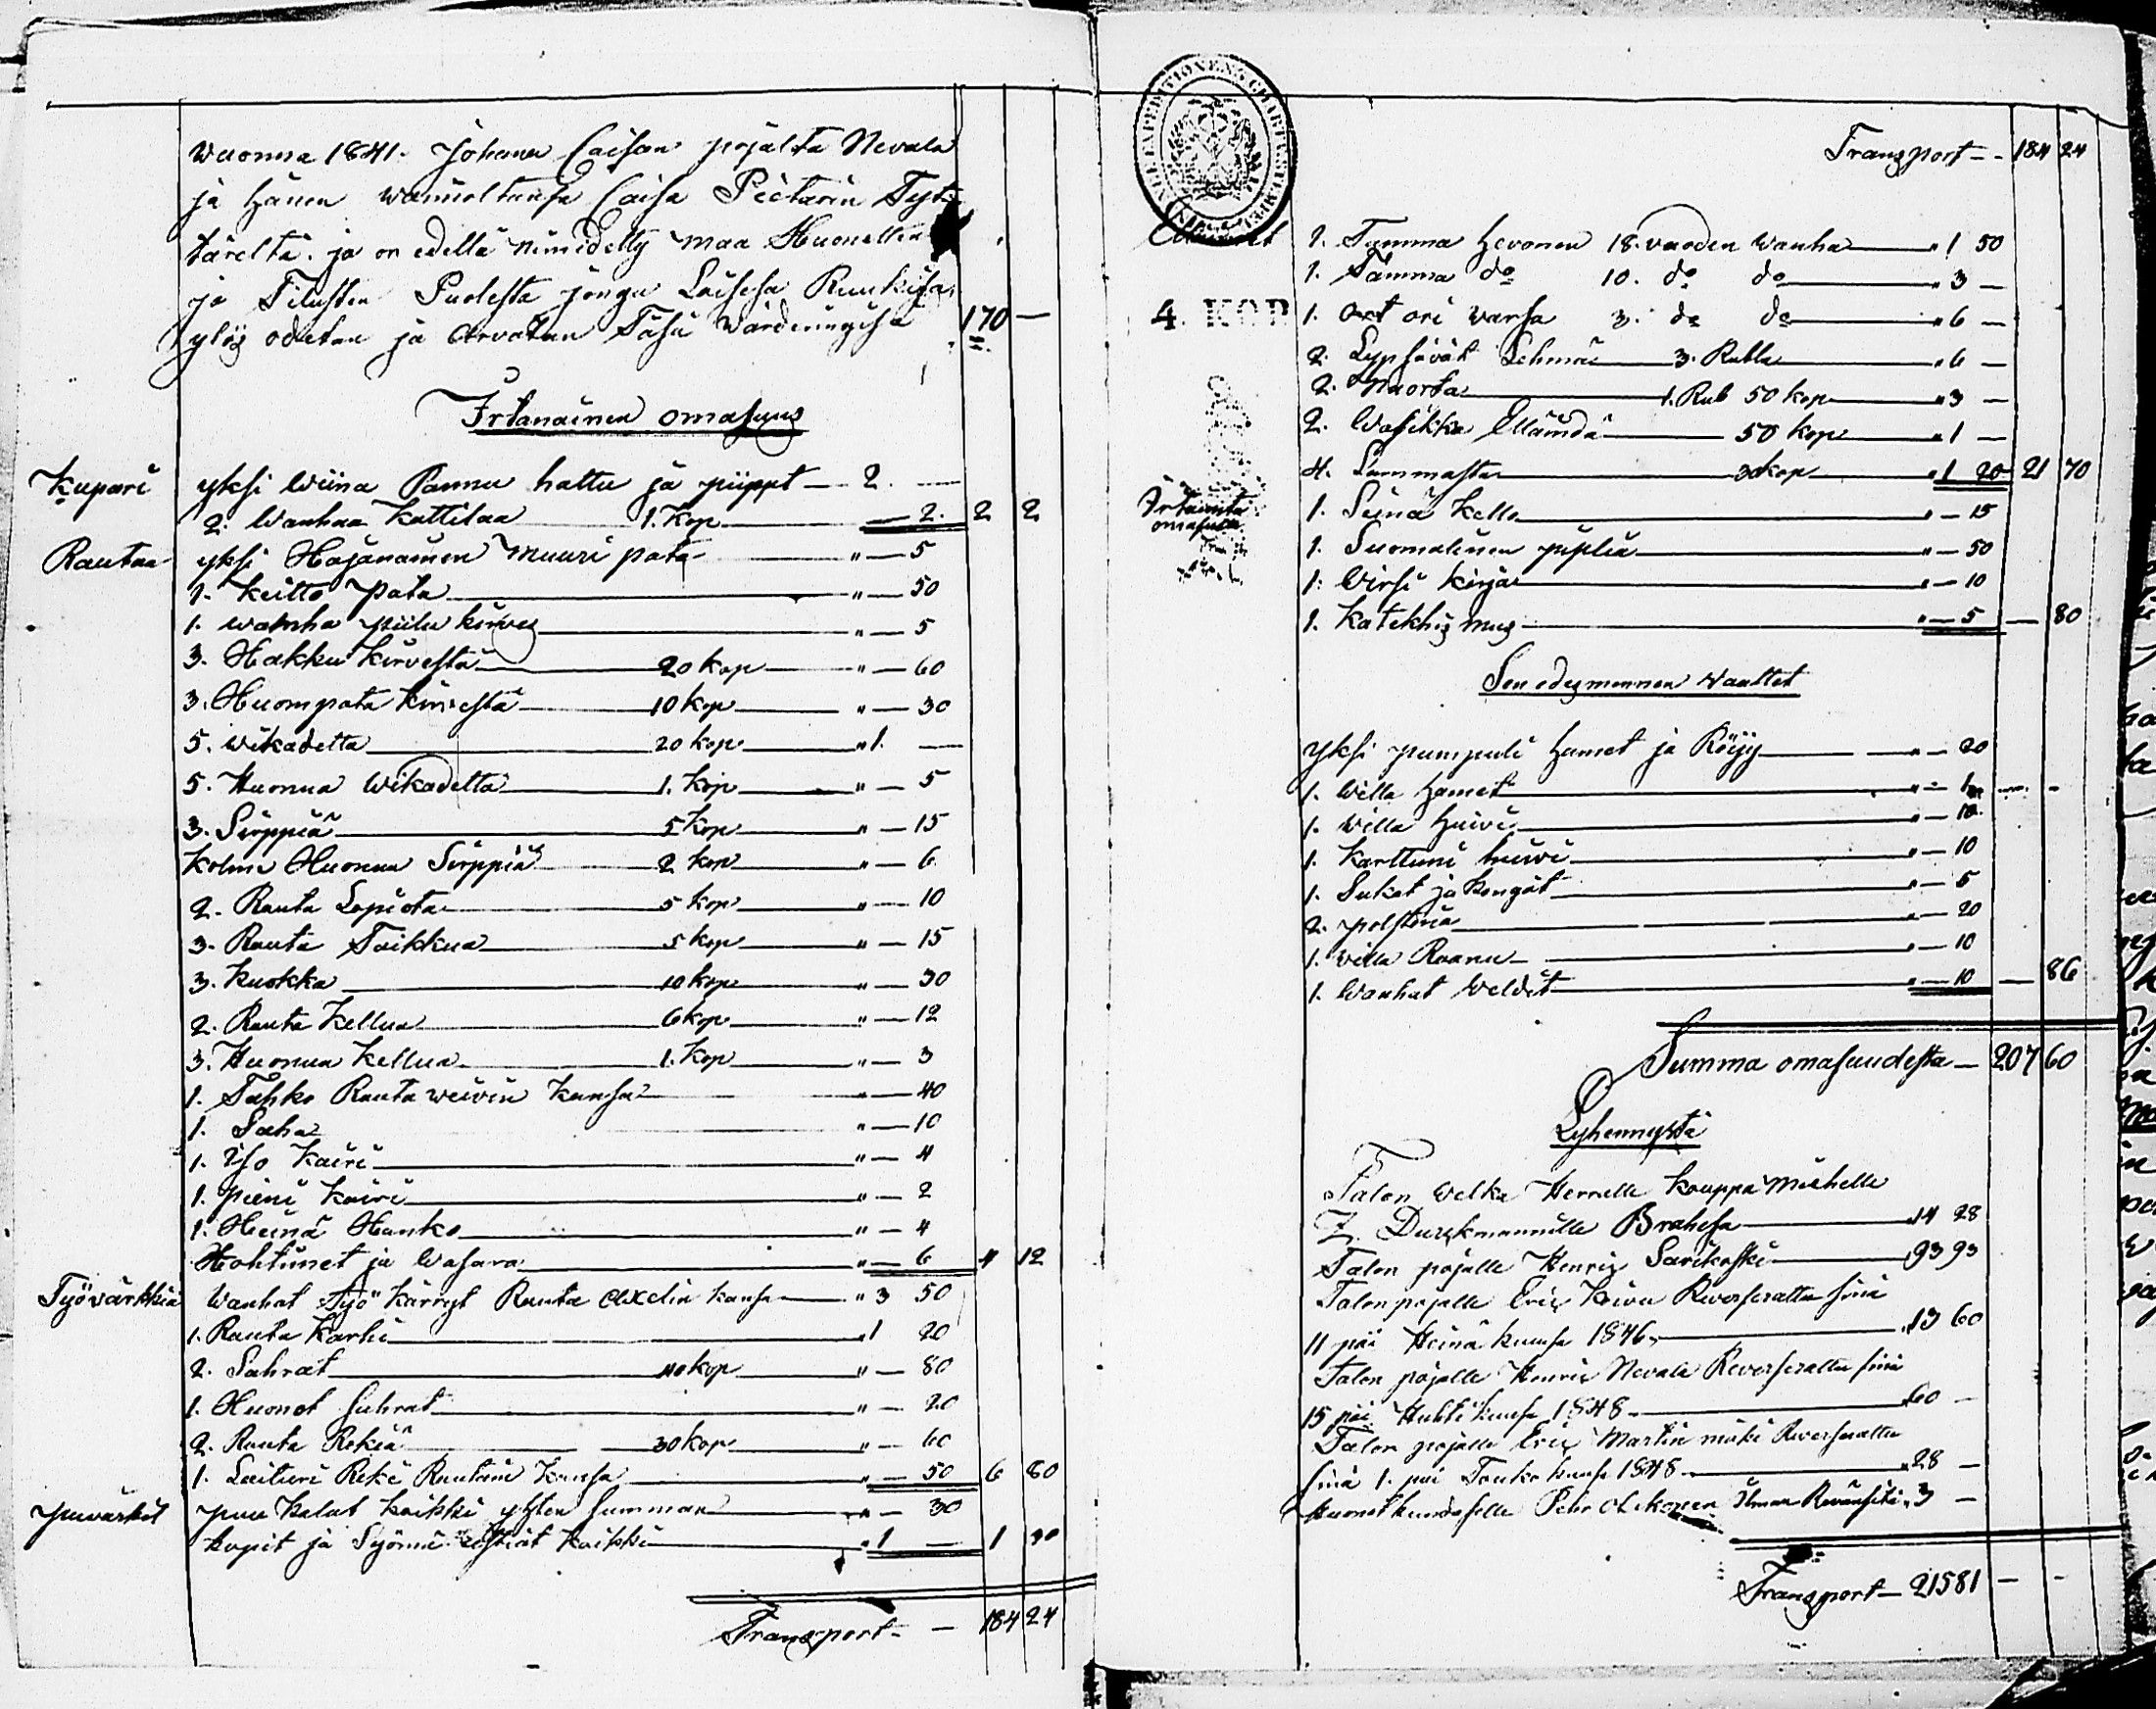 Wuonna 1841. Johann Caisan pojalta Nevala
ja hänen waimoltansa Caisa Pietarin Tyt-
täreltä. ja on edellä nimidetty maa Huonetten
ja Tilusten Puolesta jonga Läisesä Ruukisa
ylös odetan ja Arvatan Täsä Wärderingisä 170 —
Irtanainen omasuus
Kupari yksi Wiina Pannu hattu ja piippt — 2. —
2. Wanhaa Kattilaa 1. Kop — 2. 2 2
Rautaa yksi Hajanainen Muuri pata " — 5
1. Keitto Pata " — 50
1. wanha piilu kirves " — 5
3. Hakku Kirvestä 20 kop " — 60
3. Huompata Kirvestä 10 kop " — 30
5. wikadetta 20 kop " 1. —
5. Huonua Wikadetta 1. kop " — 5
3. Sirppiä 5 kop " — 15
Kolme Huonua Sirppiä 2 kop " — 6
2. Rauta Lapiota 5 kop " — 10
3. Rauta Taikkua 5 kop " — 15
3. Kuokka 10 kop " — 30
2. Rauta Kellua 6 kop " — 12
3. Huonua Kellua 1. Kop " — 3
1. Tahko Rauta weivin Kansa " — 40
1. Saha " — 10
1. Iso Kairi " — 4
1. pieni Kairi " — 2
1. Heinä Hanko " — 4
Hohtimet ja Wasara " — 6 4 12
Työvärkkiä Wanhat Työ Kärryt Rauta Axelin kansa " 3 50
1. Rauta Karhi " 1 20
2. Sahrat 40 kop " — 80
1. Huonot sahrat " — 20
2. Rauta Rekiä 30 kop " — 60
1. Laituri Reki Rautain Kansa " — 50 6 80
puuvärkit puu Kalut kaikki yhten summan " — 30
kupit ja Syömä Astiat Kaikki " 1 — 1 30
Transport — 184 24
Transport — 184 24
4. KOP
1. Tamma Hevonen 18. vuoden Wanha " 1 50
1. Tamma do 10. do do " 3 —
1. Ort ori varsa 3. do do " 6 —
2. Lypsävät Lehmäe 3. Rubla " 6 —
2. Nuorta 1. Rub 50 kop " 3 —
2. Wasikka Ellämdä 50 kop " 1 —
4. Lammasta 30 kop " 1 20 21 70
Irtainta
omasutta
1. Seinä Kello " — 15
1. Suomalinen piplia " — 50
1. Wirsi kirja " — 10
1. Katekhismus " — 5 — 80
Sen edesmennen Waattet
yksi pumpuli Hamet ja Röijy " — 20
1. Willa Hamet " — 1 — -
1. Willa Huivi " — 10
1. Karttuni huivi " — 10
1. Sukat ja kengät " — 5
2. polsteria " — 20
1. Willa Raanu " — 10
1. Wanhat Weldit " — 10 — 86
Summa omasuudesta — 207 60
Lyhennystä
Talon Welka Herrelle kauppa miehelle
Z. Durckmannille Brahesa " 14 28
Talon pojalle Henric Sarikoski " 93 93
Talon pojalle Eric Keivu Reversserattu sinä
11 päi Heinä kuusa 1846. " 13 60
Talon pojalle Henric Nevala Reversserattu sinä
15 päi Huhti kuusa 1848 " 60 —
Talon pojalle Eric Martin mäki Reversserattu
sinä 1. päi Touko kuusa 1848 " 28 —
Huonekundaselle Pehr Ilman Revärsitä " 3 —
Transport — 215 81 — -